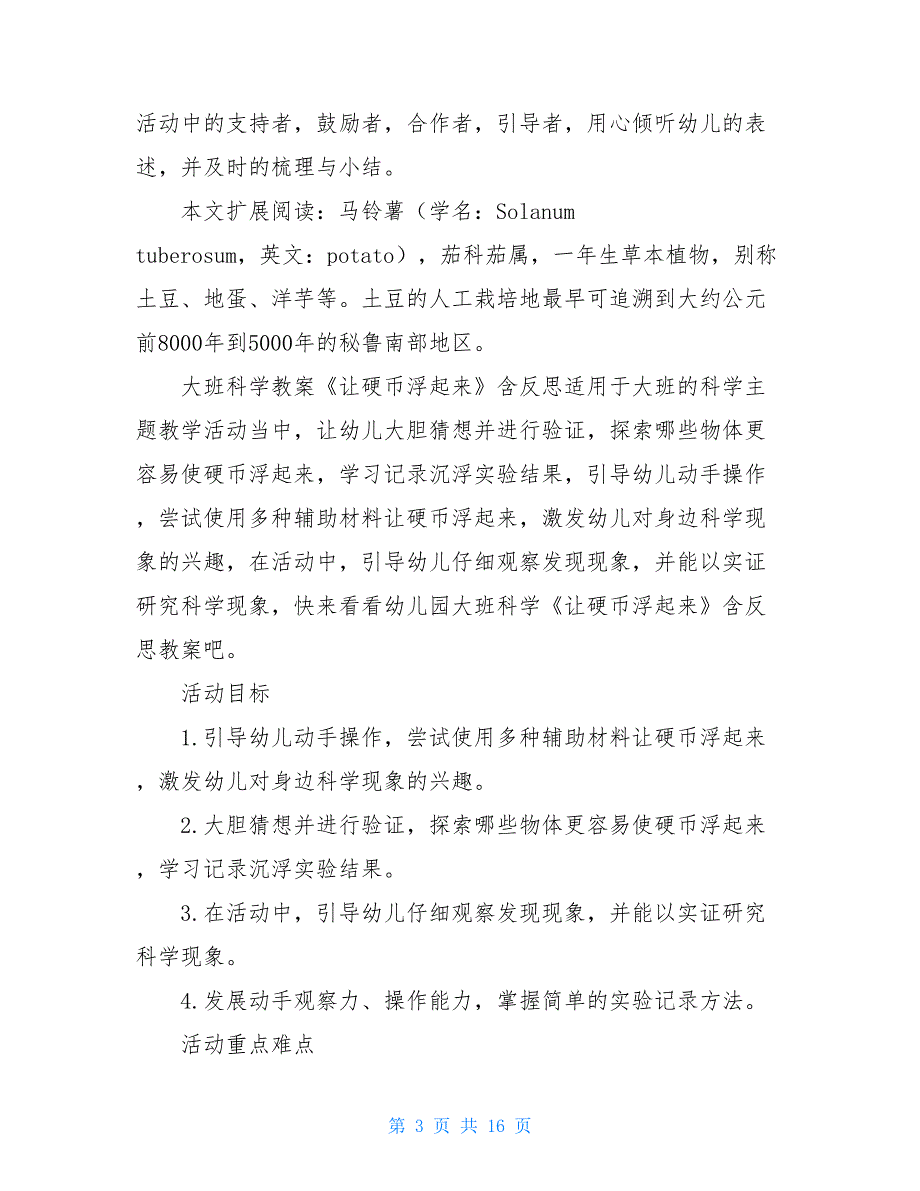 活动中的支持者，鼓励者，合作者，引导者，用心倾听幼儿的表
述，并及时的梳理与小结。
本文扩展阅读：马铃薯（学名：Solanum
tuberosum，英文：potato），茄科茄属，一年生草本植物，别称
土豆、地蛋、洋芋等。土豆的人工栽培地最早可追溯到大约公元
前8000年到5000年的秘鲁南部地区。
大班科学教案《让硬币浮起来》含反思适用于大班的科学主
题教学活动当中，让幼儿大胆猜想并进行验证，探索哪些物体更
容易使硬币浮起来，学习记录沉浮实验结果，引导幼儿动手操作
，尝试使用多种辅助材料让硬币浮起来，激发幼儿对身边科学现
象的兴趣，在活动中，引导幼儿仔细观察发现现象，并能以实证
研究科学现象，快来看看幼儿园大班科学《让硬币浮起来》含反
思教案吧。
活动目标
1.引导幼儿动手操作，尝试使用多种辅助材料让硬币浮起来
，激发幼儿对身边科学现象的兴趣。
2.大胆猜想并进行验证，探索哪些物体更容易使硬币浮起来
，学习记录沉浮实验结果。
3.在活动中，引导幼儿仔细观察发现现象，并能以实证研究
科学现象。
4.发展动手观察力、操作能力，掌握简单的实验记录方法。
活动重点难点
第 3 页 共 16 页